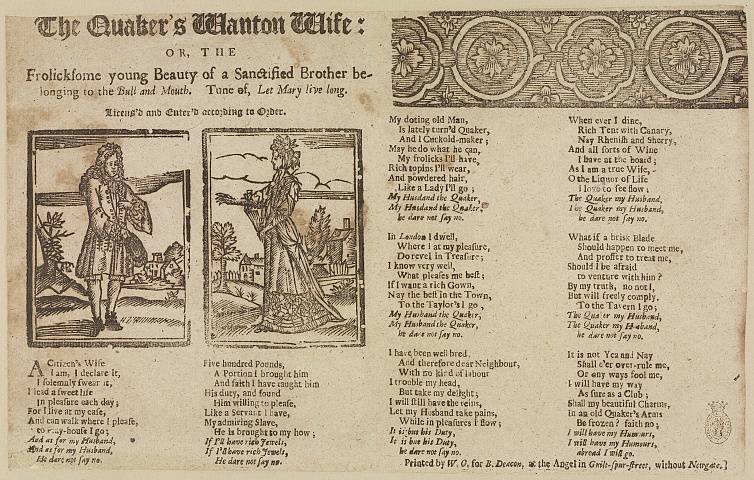 The Quaker's Wanton Wife:
OR, THE
Frolicksome young Beauty of a Sanctified Brother be-
longing to the Bull and Mouth. Tune of, Let Mary live long.
Licens'd and Enter'd according to Order.
A Citizen's Wife
I am, I declare it,
I solemnly swear it,
I lead a sweet life
In pleasure each day;
For I live at my ease,
And can walk where I please,
to Play-house I go;
And as for my Husband,
And as for my Husband,
He dare not say no.
Five hundred Pounds,
A Portion I brought him
And faith I have taught him
His duty, and found
Him willing to please,
Like a Servant I have,
My admiring Slave,
He is brought to my bow;
If I'll have rich Jewels,
If I'll have rich Jewels,
He dare not say no.
My doting old Man,
Is lately turn'd Quaker,
And I Cuckold-maker;
May he do what he can,
My frolicks I'll have,
Rich topins I'll wear,
And powdered hair,
Like a Lady I'll go;
My Husband the Quaker,
My Husband the Quaker,
he dare not say no.
In London I dwell,
Where I at my pleasure,
Do revel in Treasure;
I know very well,
What pleases me best;
If I want a rich Gown,
Nay the best in the Town,
To the Taylor's I go,
My Husband the Quaker,
My Husband the Quaker,
he dare not say no.
I have been well bred,
And therefore dear Neighbour,
With no kind of labour
I trouble my head,
But take my delight;
I will still have the reins,
Let my Husband take pains,
While in pleasures I flow;
It is but his Duty,
It is but his Duty,
he dare not say no.
When ever I dine,
Rich Tent with Canary,
Nay Rhenish and Sherry,
And all sorts of Wine
I have at the board;
As I am a true Wife,
O the Liquor of Life
I love to see flow;
The Quaker my Husband,
The Quaker my Husband,
he dare not say no.
What if a brisk Blade
Should happen to meet me,
And proffer to treat me,
Should I be afraid
to venture with him?
By my truth, no not I,
But will freely comply,
To the Tavern I go;
The Quaker my Husband,
The Quaker my Husband,
he dare not say no.
It is not Yea and Nay
Shall e'er over-rule me,
Or any ways fool me,
I will have my way
As sure as a Club;
Shall my beautiful Charms,
In an old Quaker's Arms
Be frozen? faith no;
I will have my Humours,
I will have my Humours,
abroad I will go.
Printed by W. O. for B. Deacon, at the Angel in Guilt-spur-street, without Newgate.